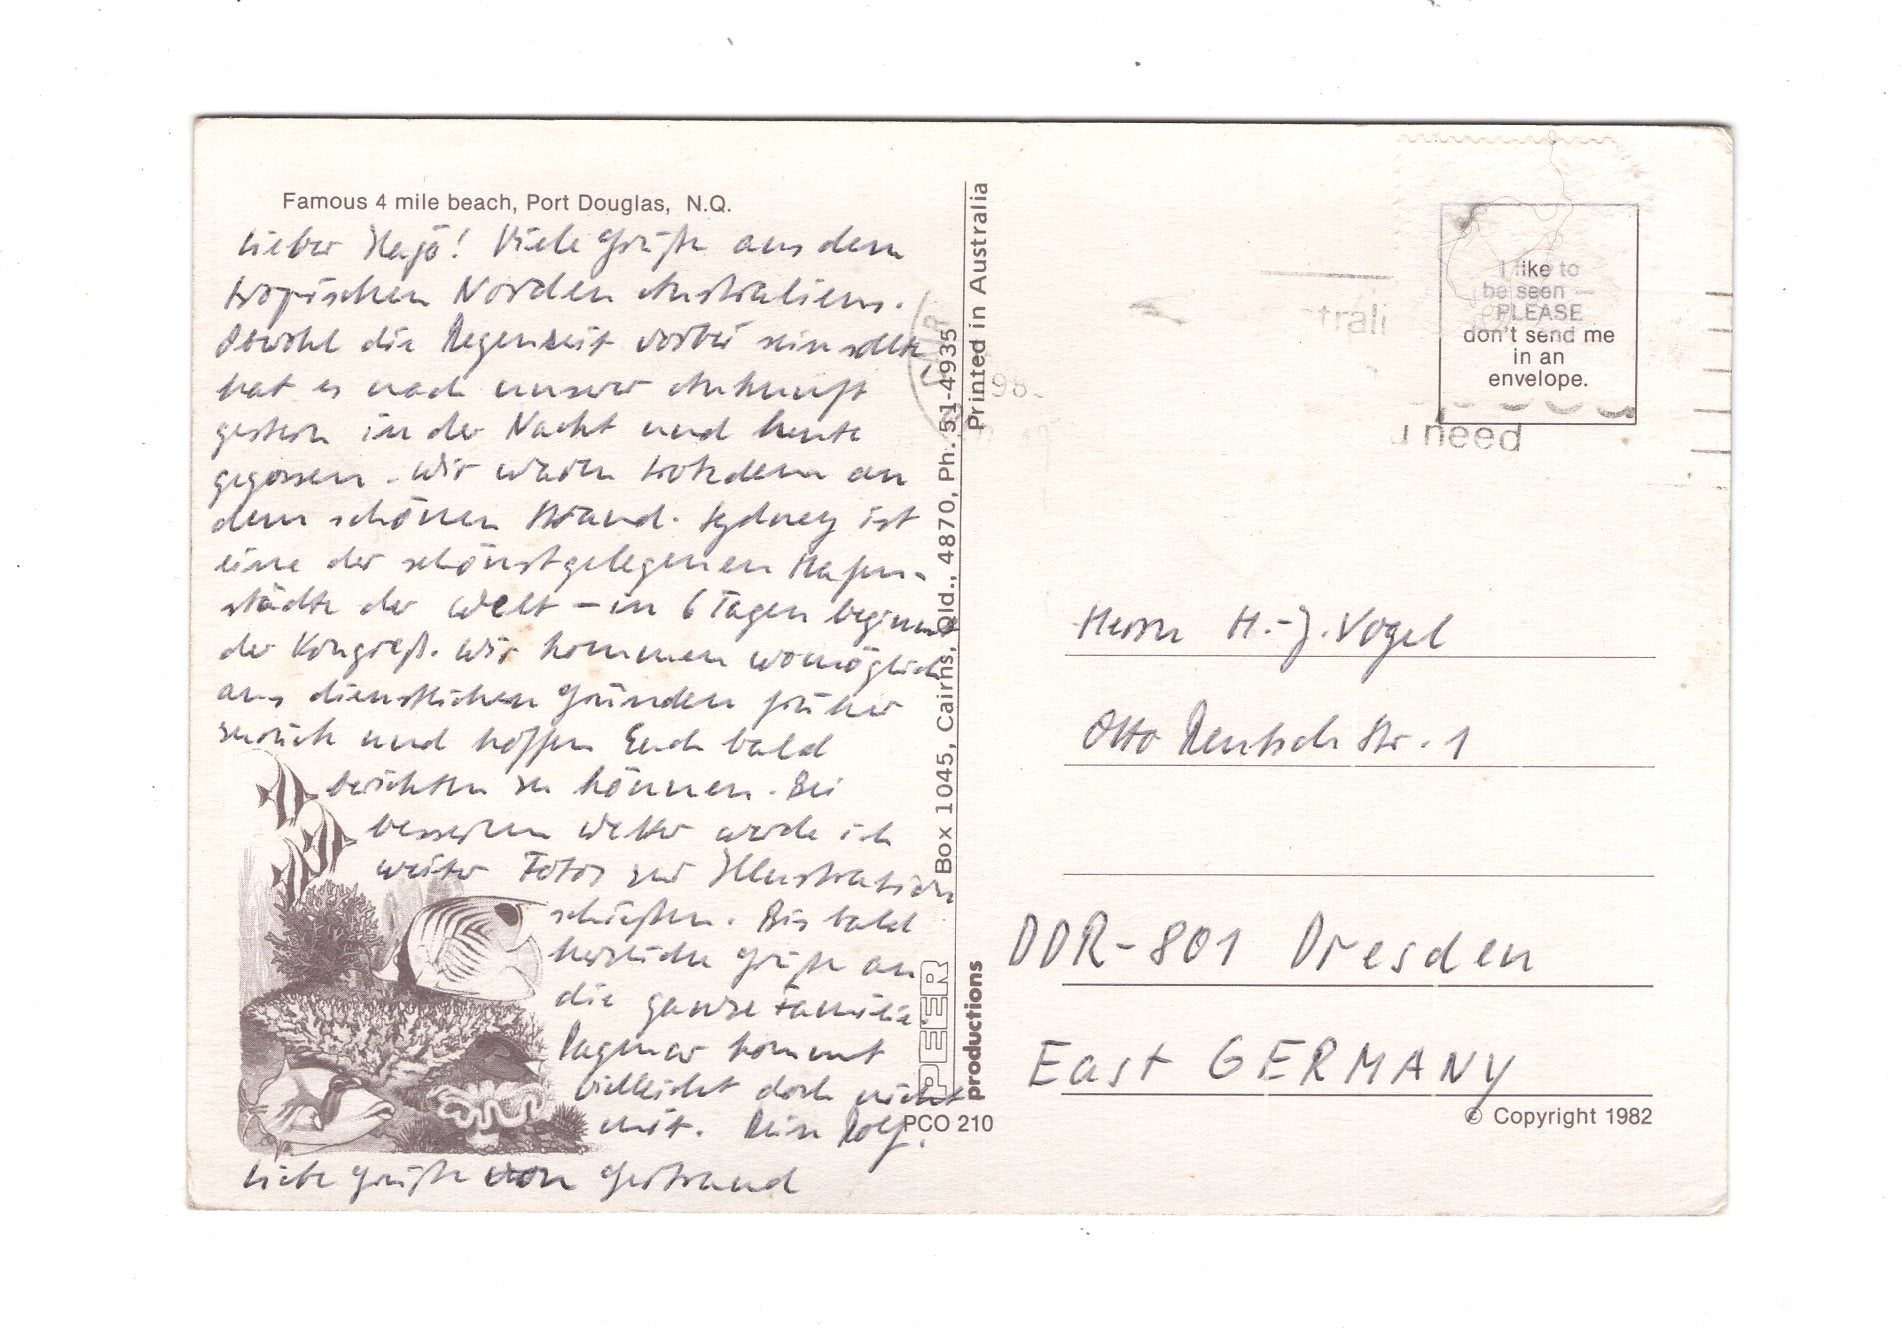 Famous 4 mile beach, Port Douglas, N.Q.
Lieber Hajo! Viele Grüße aus dem
tropischen Norden Australiens.
Obwohl die Regenzeit vorbei sein sollte
hat es nach unserer Ankunft
gestern in der Nacht und heute
gegossen. Wir waren trotzdem an
dem schönen Strand. Sydney ist
eine der schönstgelegenen Hafen-
städte der Welt – in 6 Tagen beginnt
der Kongreß. Wir kommen womöglich
aus dienstlichen Gründen früher
zurück und hoffen Euch bald
berichten zu können. Bei
besserem Wetter werde ich
weiter Fotos zur Illustration
schießen. Bis bald
herzliche Grüße an
die ganze Familie.
Dagmar kommt
vielleicht doch nicht
mit. Dein Rolf.
Liebe Grüße von Gertraud
Box 1045, Cairns, Qld., 4870, Ph. 51-4935
Printed in Australia
PEER
productions
PCO 210
I like to
be seen —
PLEASE
don't send me
in an
envelope.
need
Herrn H.-J. Vogel
Otto Rentsch Str. 1
DDR-801 Dresden
East GERMANY
© Copyright 1982